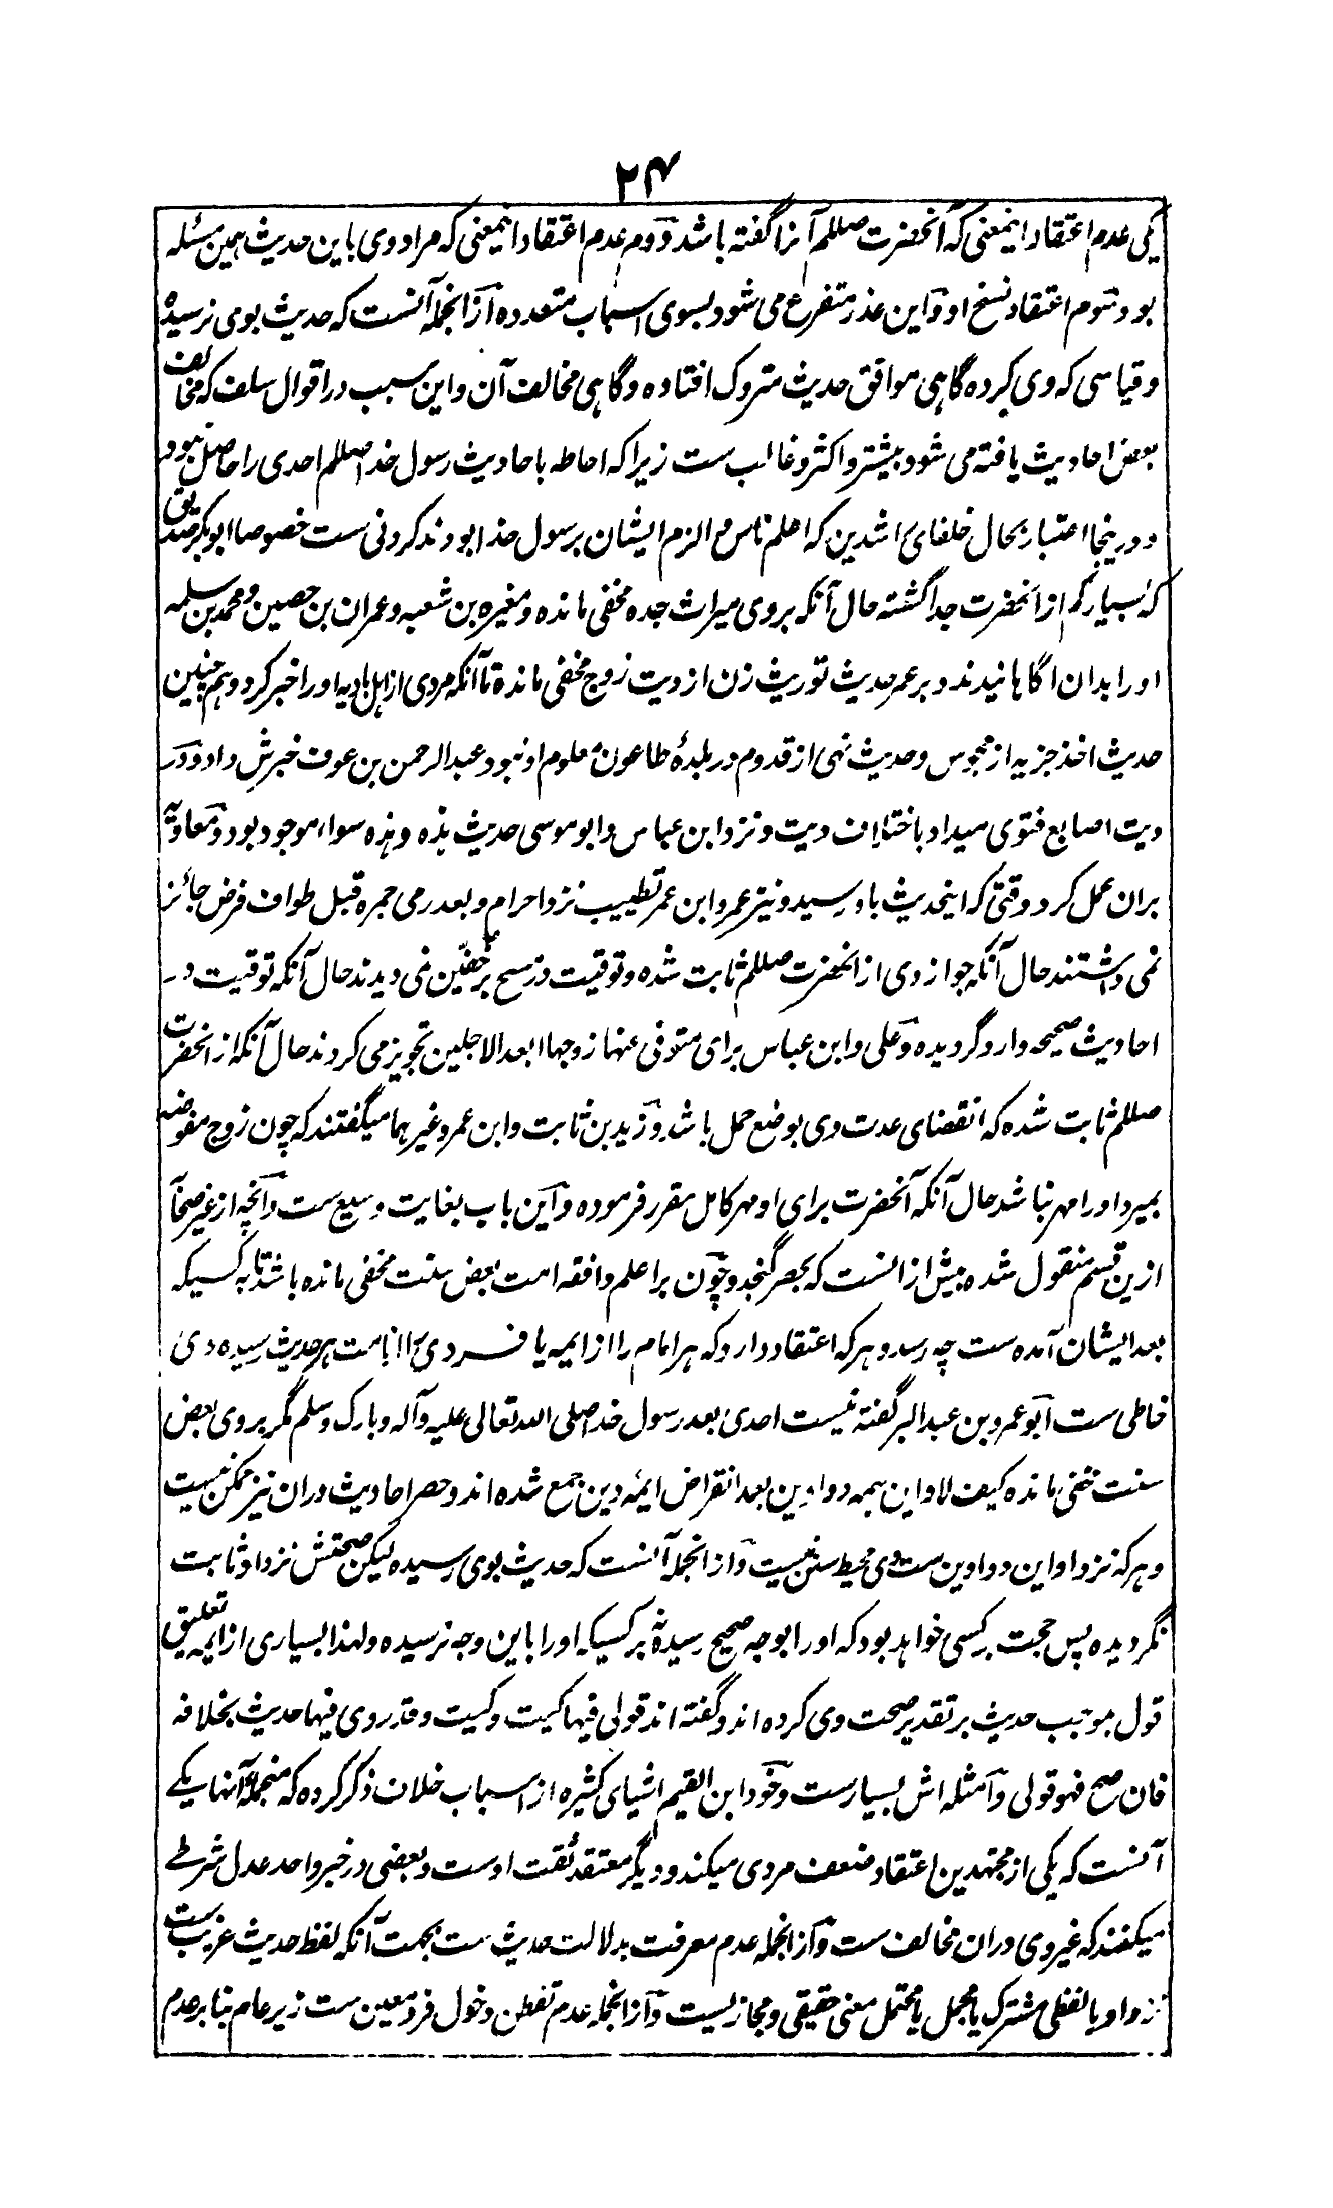 ۲۴
یکی عدم اعتقاد اینمعنی که آنحضرت صللم آنرا گفته باشد دوم عدم اعتقاد اینمعنی که مراد وی باین حدیث همین مسئله
بود سوم اعتقاد نسخ او و این عذر متفرع می شود بسوی اسباب متعدده از انجمله آنست که حدیث بوی نرسیده
و قیاسی که وی کرده گاهی موافق حدیث متروک افتاده و گاهی مخالف آن و این سبب در اقوال سلف که مخالف
بعض احادیث یافته می شود بیشتر و اکثر و غالب ست زیرا که احاطه باحادیث رسول خدا صللم احدی را حاصل نبود
و درینجا اعتبار بحال خلفای راشدین که اعلم ناس و الزم ایشان برسول خدا بودند کردنی ست خصوصا ابوبکر صدیق
که بسیار کم از آنحضرت جدا گشته حال آنکه بروی میراث جده مخفی مانده و مغیره بن شعبه و عمران بن حصین و محمد بن سلمه
او را بدان اگاهانیدند و بر عمر حدیث توریث زن از دیت زوج مخفی مانده تا آنکه مردی از اهل بادیه او را خبر کرد و هم چنین
حدیث اخذ جزیه از مجوس و حدیث نهی از قدوم در بلدۀ طاعون معلوم او نبود عبدالرحمن بن عوف خبرش داد و در
دیت اصابع فتوی میداد باختلاف دیت و نزد ابن عباس و ابو موسی حدیث هذه و هذه سواء موجود بود و معاویه
بران عمل کرد وقتی که اینحدیث باو رسید و نیز عمر و ابن عمر تطییب نزد احرام و بعد رمی جمره قبل طواف فرض جائز
نمی داشتند حال آنکه جواز وی از آنحضرت صللم ثابت شده و توقیت در مسح بر خفین نمی دیدند حال آنکه توقیت در
احادیث صحیحه وارد گردیده و علی و ابن عباس برای متوفی عنها زوجها ابعد الاجلین تجویز می کردند حال آنکه از آنحضرت
صللم ثابت شده که انقضای عدت وی بوضع حمل باشد و زید بن ثابت و ابن عمر و غیر هما میگفتند که چون زوج مفوضه
بمیرد او را مهر نباشد حال آنکه آنحضرت برای او مهر کامل مقرر فرموده و این باب بغایت وسیع ست و آنچه از غیر صحابه
ازین قسم منقول شده بیش از انست که بحصر گنجد و چون بر اعلم و افقه امت بعض سنت مخفی مانده باشد تا به کسیکه
بعد ایشان آمده ست چه رسد و هر که اعتقاد دارد که هر امام را از ایمه یا فردی را از امت هر حدیث رسیده وی
خاطی ست ابو عمرو بن عبدالبر گفته نیست احدی بعد رسول خدا صلی الله تعالی علیه وآله وبارک وسلم مگر بروی بعض
سنت مخفی مانده کیف لا و این همه دواوین بعد انقراض ایمۀ دین جمع شده اند و حصر احادیث دران نیز ممکن نیست
و هر که نزد او این دواوین ست وی محیط سنن نیست و از انجمله آنست که حدیث بوی رسیده لیکن صحتش نزد او ثابت
نگردیده پس حجت بر کسی خواهد بود که او را بوجه صحیح رسیده نه بر کسیکه او را باین وجه نرسیده و لهذا بسیاری از ایمه تعلیق
قول بموجب حدیث بر تقدیر صحت وی کرده اند و گفته اند قولی فیها کیت و کیت و قد روی فیها حدیث بخلافه
فان صح فهو قولی و امثله اش بسیارست و خود ابن القیم اشیای کثیره از اسباب خلاف ذکر کرده که منجملۀ آنها یکے
آنست که یکی از مجتهدین اعتقاد ضعف مردی میکند و دیگر معتقد ثقت اوست و بعضی در خبر واحد عدل شرطے
میکنند که غیر وی دران مخالف ست و از انجمله عدم معرفت بدلالت حدیث ست بجهت آنکه لفظ حدیث غریب ست
نزد او یا لفظی مشترک یا مجمل یا محتمل معنی حقیقی و مجازیست و از انجمله عدم تفطن دخول فرد معین ست زیر عام بنا بر عدم